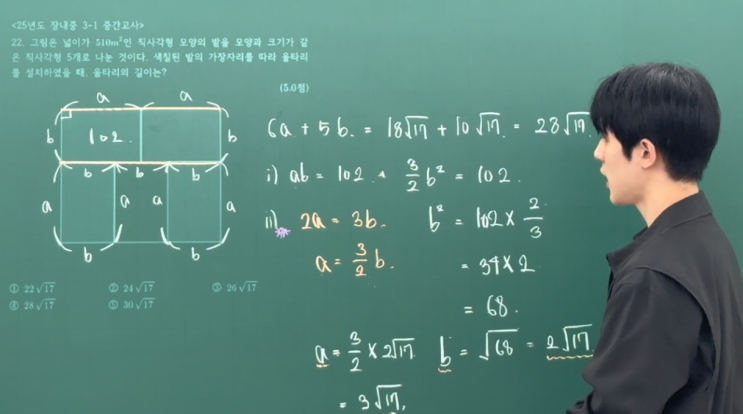 <25년도 장내중 3-1 중간고사>
22. 그림은 넓이가 510m²인 직사각형 모양의 밭을 모양과 크기가 같
은 직사각형 5개로 나눈 것이다. 색칠된 밭의 가장자리를 따라 울타리
를 설치하였을 때, 울타리의 길이는?
(5.0점)
a a
b 102. b
b b b
a a a a
b b
① 22√17 ② 24√17 ③ 26√17
④ 28√17 ⑤ 30√17
6a + 5b = 18√17 + 10√17 = 28√17
i) ab = 102 3/2 b² = 102.
ii) 2a = 3b. b² = 102 × 2/3
a = 3/2 b. = 34×2
= 68.
a = 3/2 × 2√17 b = √68 = 2√17
= 3√17,